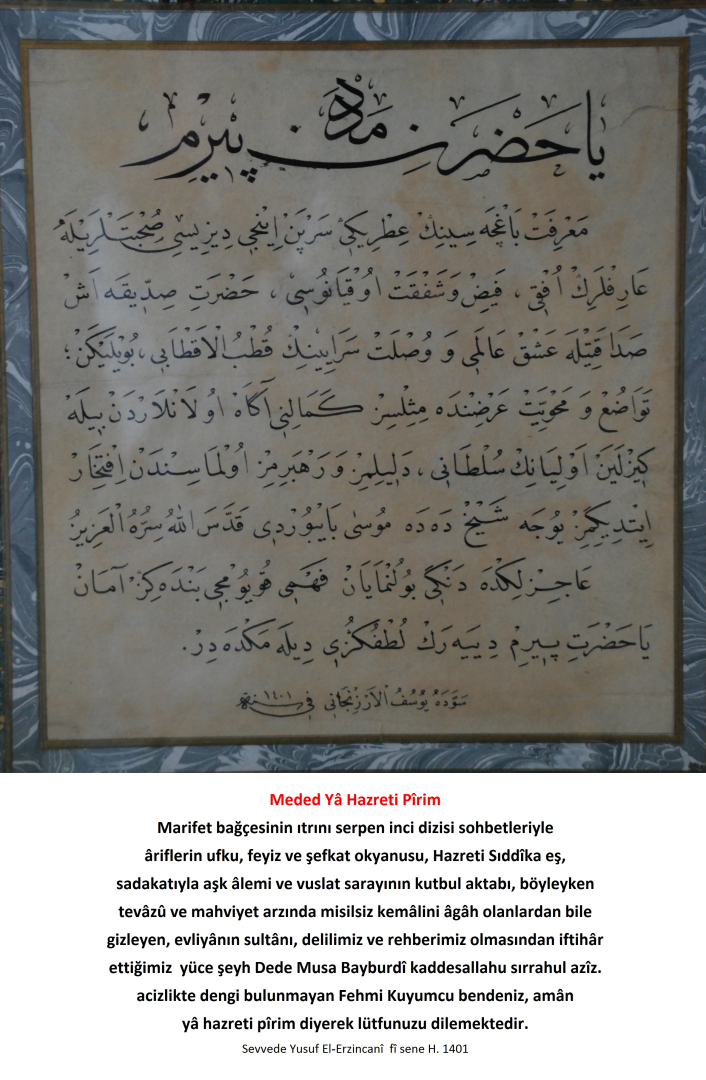 مدد
يا حضرت پيرم
مَعْرِفَتْ بَاغْچَه سِينِكْ عِطْرِيكِى سَرْپَنْ اِينْجِى دِيزِيسِى صُحْبَتْلَرِيلَهْ
عَارِفْلَرِكْ اُفْقِى ، فَيِضْ وَ شَفْقَتْ اُوقْيَانُوسِى ، حَضْرَتِ صِدّيقَه اَشْ
صَدَاقَتِيْلَه عَشْقْ عَالَمِى وَ وُصْلَتْ سَرَايِينِكْ قُطْبُ الْاَقْطَابِى ، بُويْلَيْكَنْ ؛
تَوَاضُعْ وَ مَحْوِيَّتْ عَرْضِنْدَه مِثِلْسِزْ كَمَالِنِى آكَاهْ اُولَانْلَارْدَنْ بِيلَه
كِيزْلَيَنْ اَوْلِيَانِكْ سُلْطَانِى ، دَلِيلِمِزْ وَ رَهْبَرِمِزْ اُولْمَاسِنْدَنْ اِفْتِخَارْ
اِيتْدِيكِمِزْ يُوجَه شَيْخْ دَه دَه مُوسَى بَايْبُورْدِى قَدَّسَ اللهُ سِرَّهُ الْعَزِيزْ
عَاجِزْلِكْدَه دَنْكِى بُولُنْمَايَانْ فَهْمِى قُويُومْجِى بَنْدَه كِزْ آمَانْ
يَا حَضْرَتِ پِيرِمْ دِيَيَه رَكْ لُطْفُكُزِى دِيلَه مَكْدَه دِرْ.
سَوَّدَهُ يُوسُفُ الْاَرْزِنْجَانِى فِى سنه ١٤٠١
Meded Yâ Hazreti Pîrim
Marifet bağçesinin ıtrını serpen inci dizisi sohbetleriyle
âriflerin ufku, feyiz ve şefkat okyanusu, Hazreti Sıddîka eş,
sadakatıyla aşk âlemi ve vuslat sarayının kutbul aktabı, böyleyken
tevâzû ve mahviyet arzında misilsiz kemâlini âgâh olanlardan bile
gizleyen, evliyânın sultânı, delilimiz ve rehberimiz olmasından iftihâr
ettiğimiz yüce şeyh Dede Musa Bayburdî kaddesallahu sırrahul azîz.
acizlikte dengi bulunmayan Fehmi Kuyumcu bendeniz, amân
yâ hazreti pîrim diyerek lütfunuzu dilemektedir.
Sevvede Yusuf El-Erzincanî fî sene H. 1401